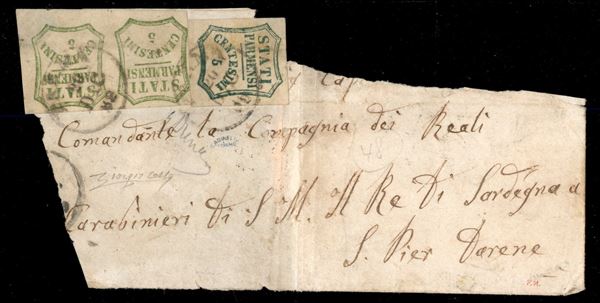 STATI
PARMENSI
CENTESIMI
5
STATI
PARMENSI
CENTESIMI
5
STATI
PARMENSI
CENTESIMI
5
Cap
Comandante la Compagnia dei Reali
Carabinieri Di S. M. Il Re Di Sardegna a
S. Pier Darene